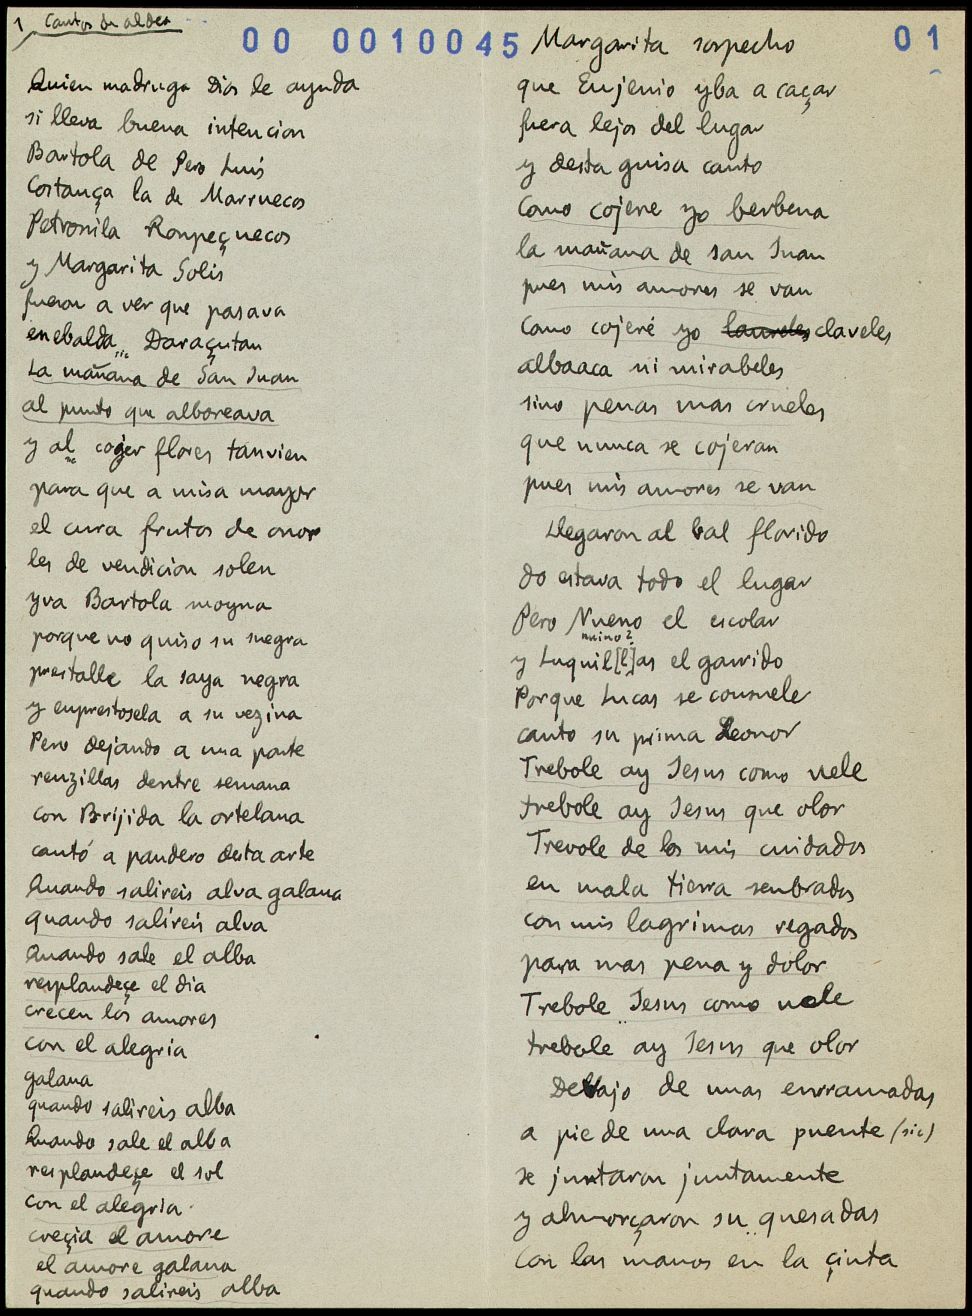 1 Cantos de aldea
00 0010045
01
Quien madruga Dios le ayuda
si lleva buena intencion
Bartola de Pero Luis
Costança la de Marruecos
Petronila Ronpeçuecos
y Margarita Solis
fueron a ver que pasava
enebalda sic Daraçutan
La mañana de San Juan
al punto que alboreava
y al coger flores tanvien
para que a misa mayor
el cura frutos de onor
les de vendicion solen
yva Bartola moyna
porque no quiso su suegra
prestalle la saya negra
y enprestosela a su vezina
Pero dejando a una parte
renzillas dentre semana
con Brijida la ortelana
cantó a pandero desta arte
Quando salireis alva galana
quando salireis alva
Quando sale el alba
resplandeçe el dia
crecen los amores
con el alegria
galana
quando salireis alba
Quando sale el alba
resplandeçe el sol
con el alegria
creçia el amore
el amore galana
quando salireis alba
Margarita sospecho
que Eujenio yba a caçar
fuera lejos del lugar
y desta guisa canto
Como cojere yo berbena
la mañana de san Juan
pues mis amores se van
Como cojeré yo laureles claveles
albaaca ni mirabeles
sino penas mas crueles
que nunca se cojeran
pues mis amores se van
Llegaron al bal florido
do estava todo el lugar
Pero Nueno el escolar
nuino?
y Luquil[l]as el garrido
Porque Lucas se consuele
canto su prima Leonor
Trebole ay Jesus como uele
trebole ay Jesus que olor
Trevole de los mis cuidados
en mala tierra senbrados
con mis lagrimas regados
para mas pena y dolor
Trebole Jesus como uele
trebole ay Jesus que olor
Debajo de unas enrramadas
a pie de una clara puente (sic)
se juntaron juntamente
y almorçaron su quesadas
Con las manos en la çinta